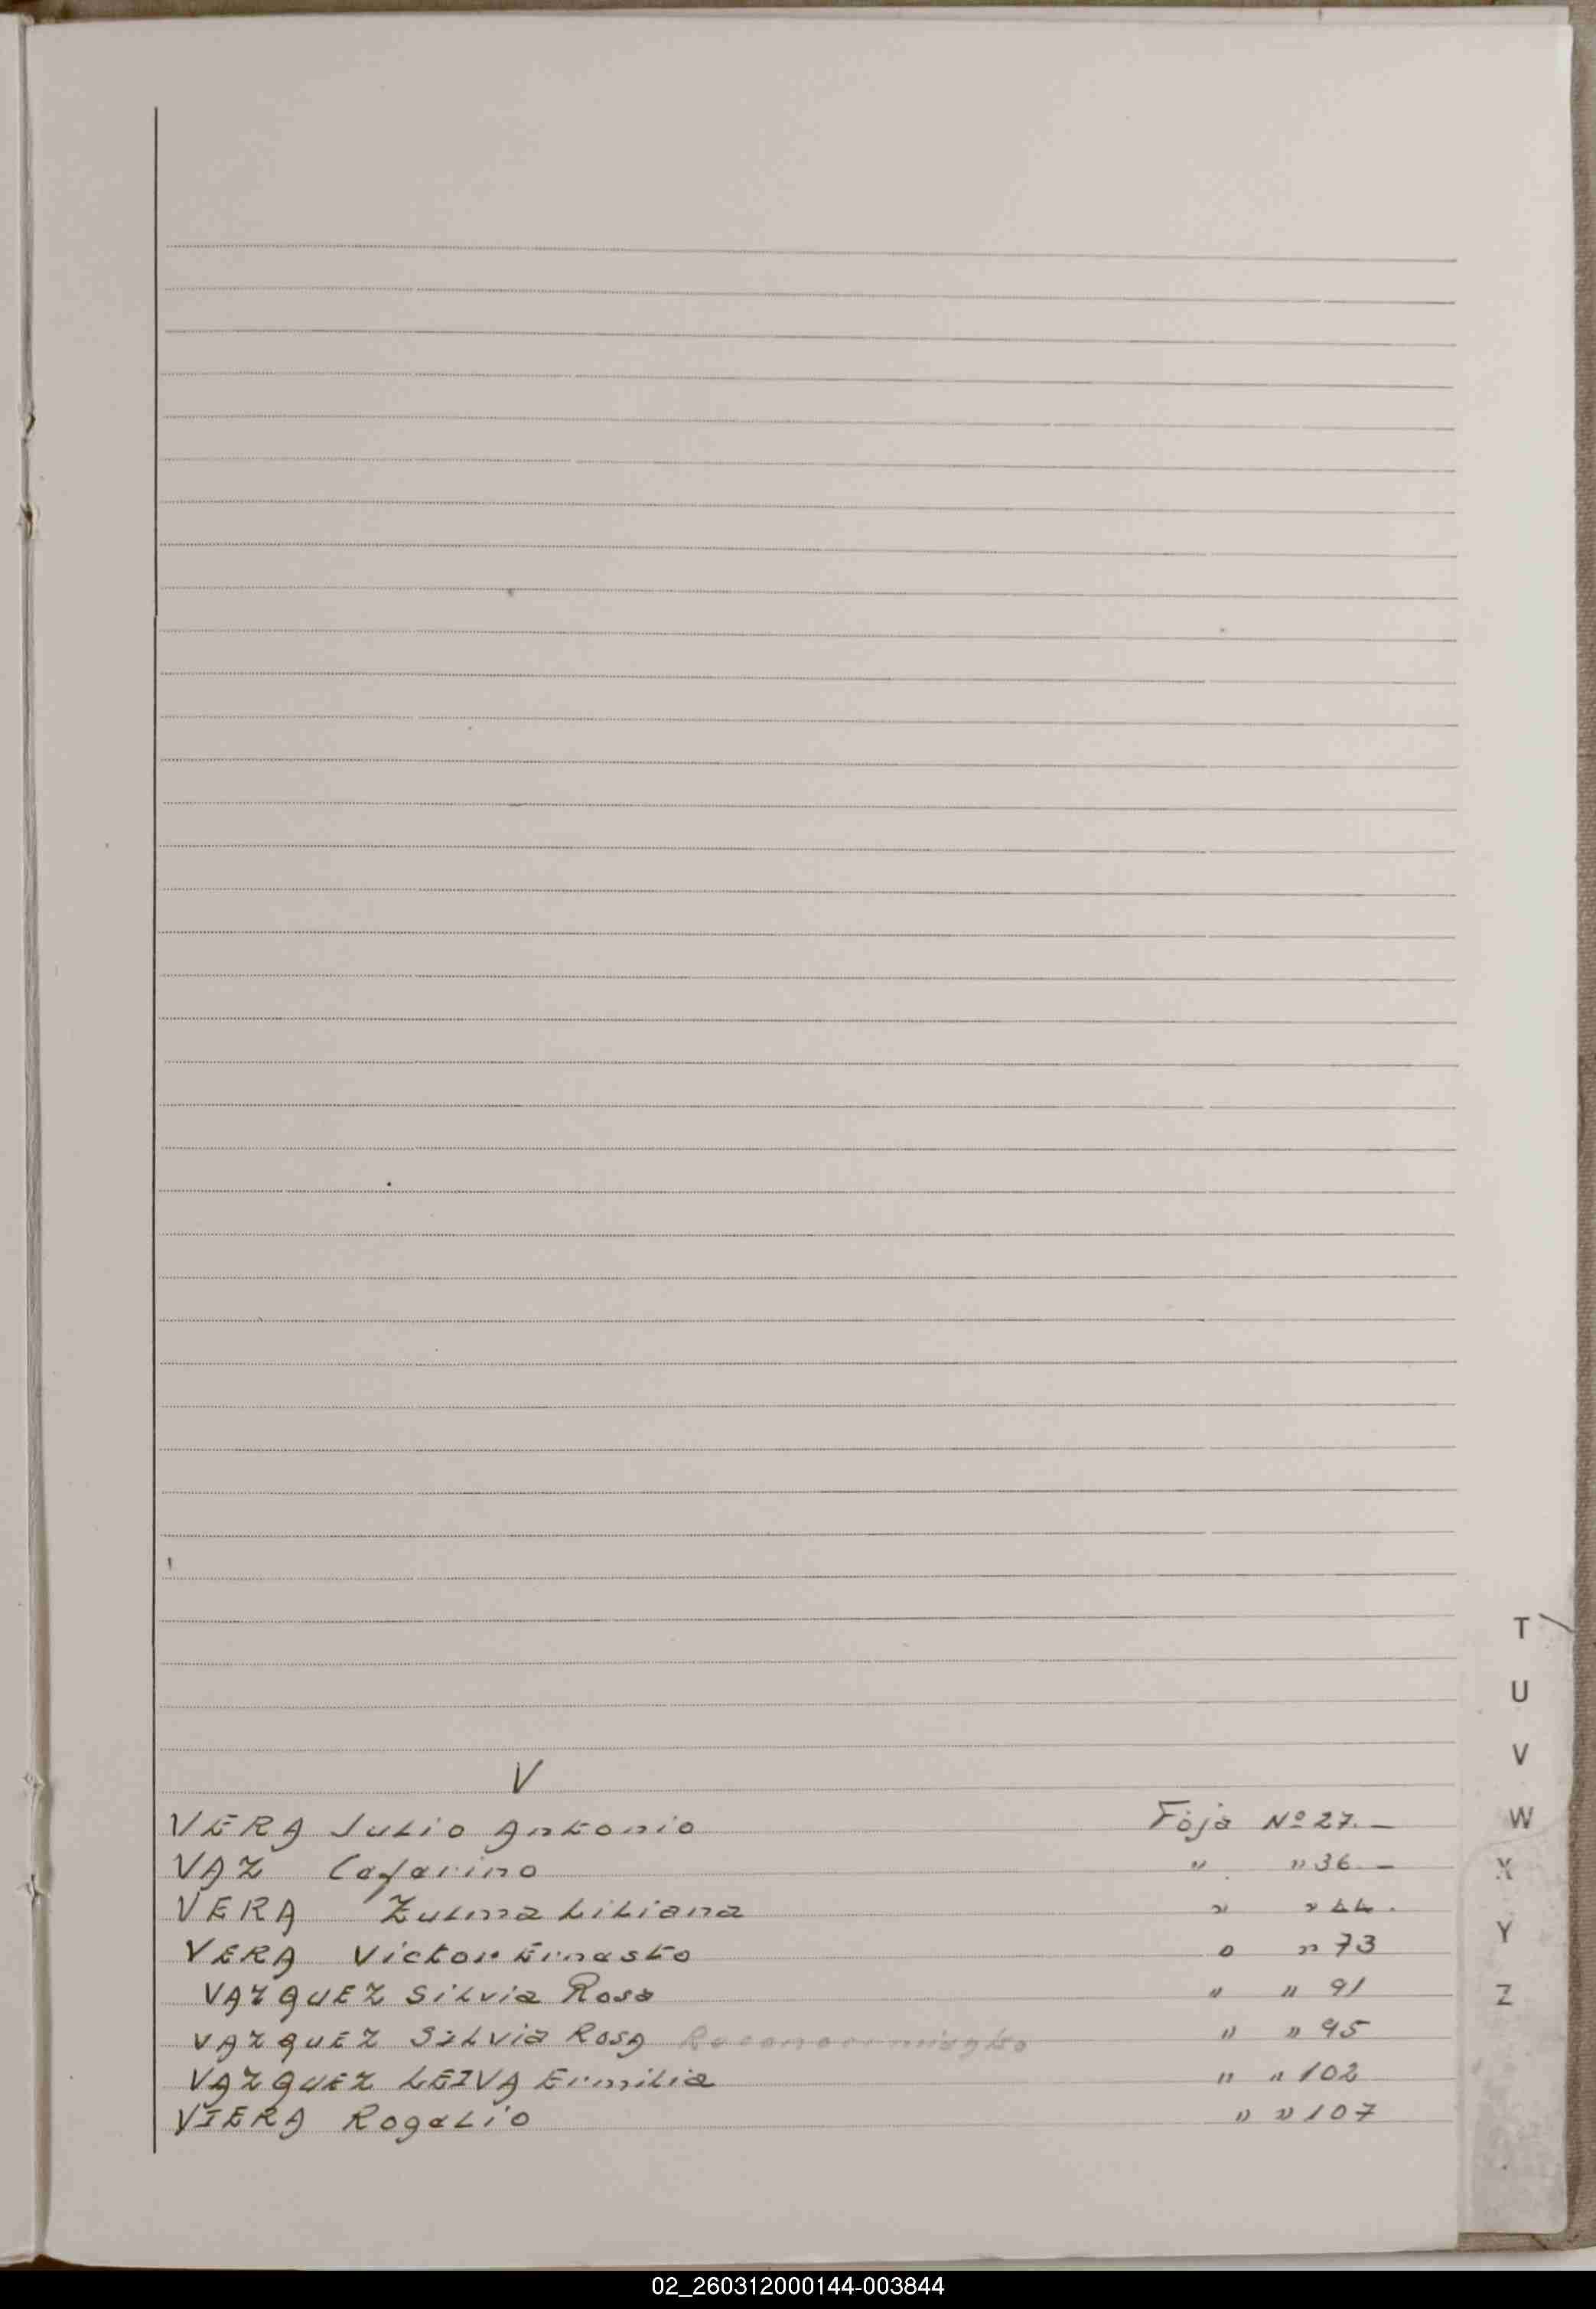 V
VERA Julio Antonio Foja Nº 27.—
VAZ Ceferino " " 36.—
VERA Zulma Liliana " " 44.
VERA Victor Ernesto " " 73
VAZQUEZ Silvia Rosa " " 91
VAZQUEZ Silvia Rosa Reconocimiento " " 95
VAZQUEZ LEIVA Ermilia " " 102
VIERA Rogelio " " 107
T
U
V
W
X
Y
Z
02_260312000144-003844